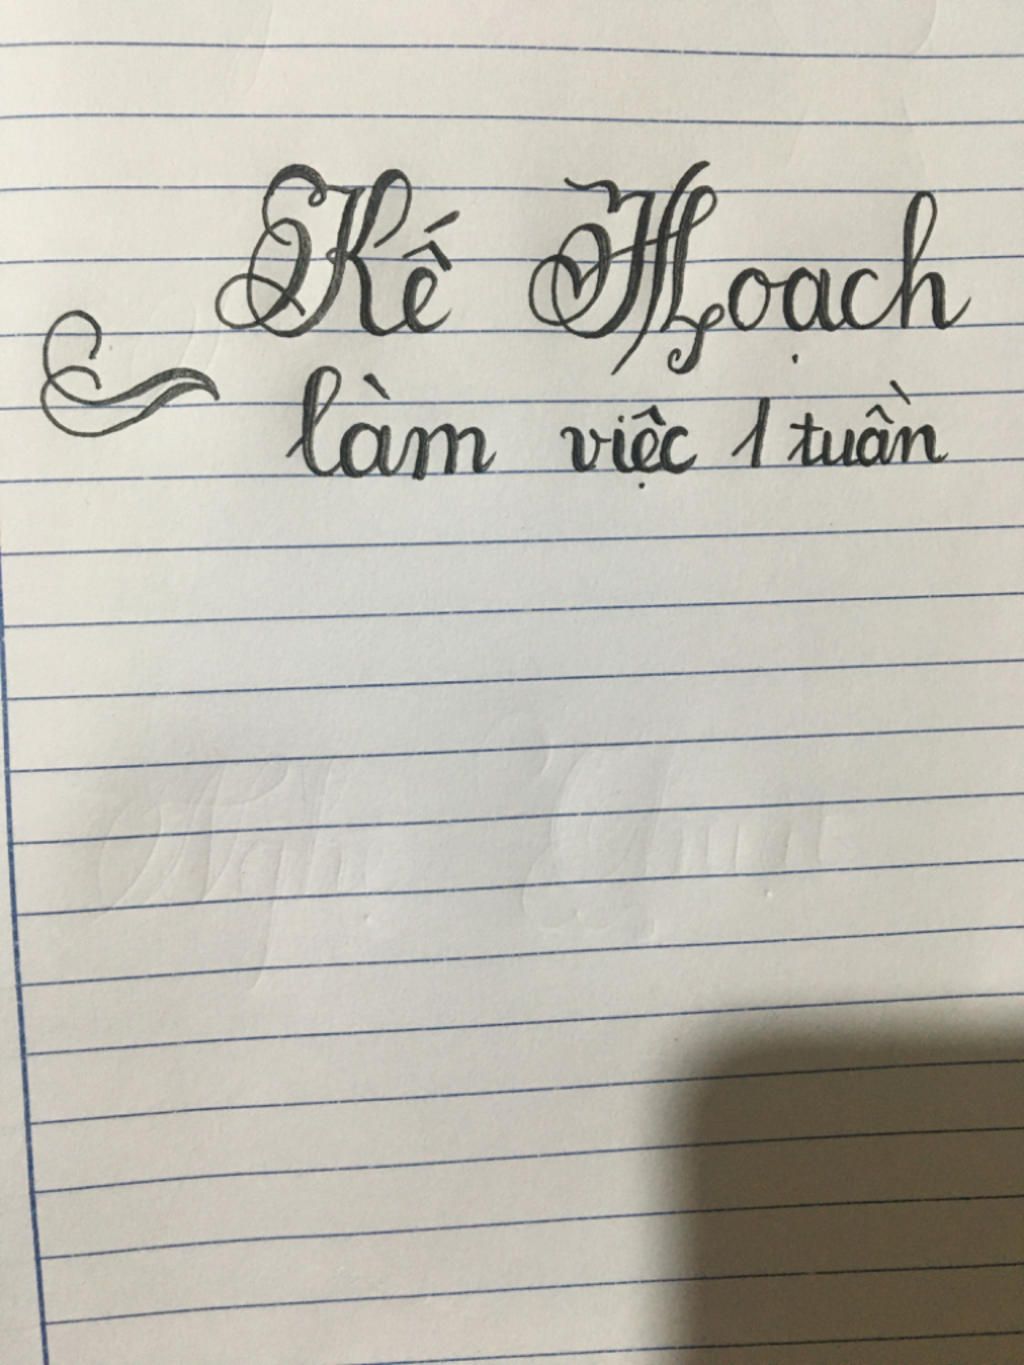 Kế Hoạch
làm việc 1 tuần